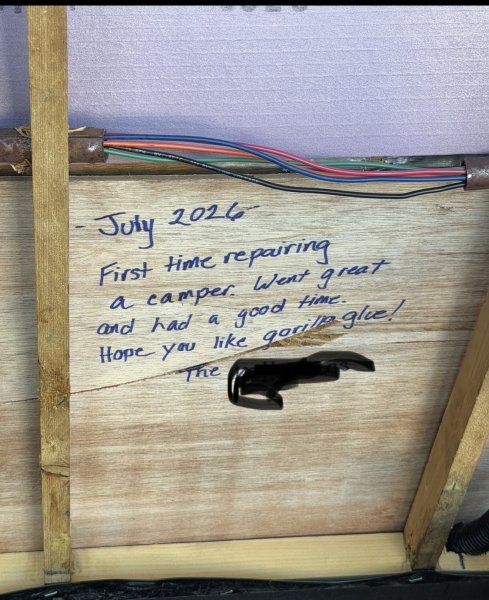 - July 2026 -
First time repairing
a camper. Went great
and had a good time.
Hope you like gorilla glue!
The